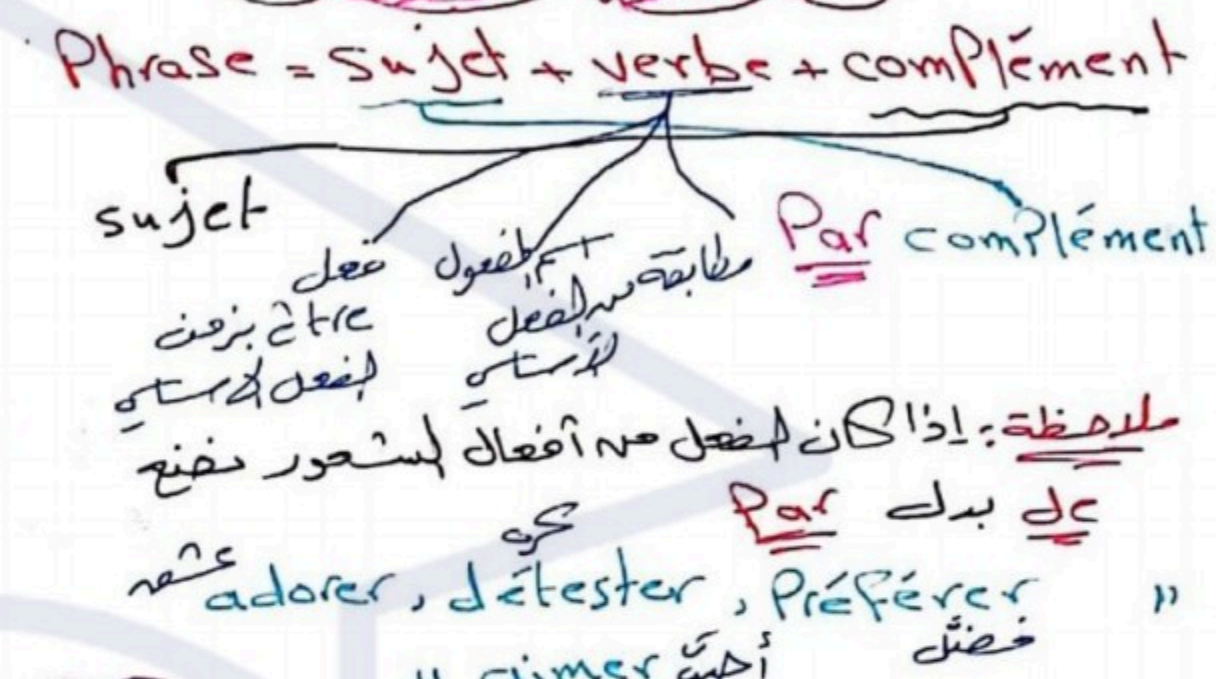 Phrase = sujet + verbe + complément
sujet
فعل
être بزمن
الفعل الأساسي
اسم المفعول
من الفعل
الأساسي
مطابقة
Par complément
ملاحظة: إذا كان الفعل من أفعال الشعور نضع
de بدل Par
adorer, détester, Préférer "
عشق
كره
فضّل
" aimer أحبّ